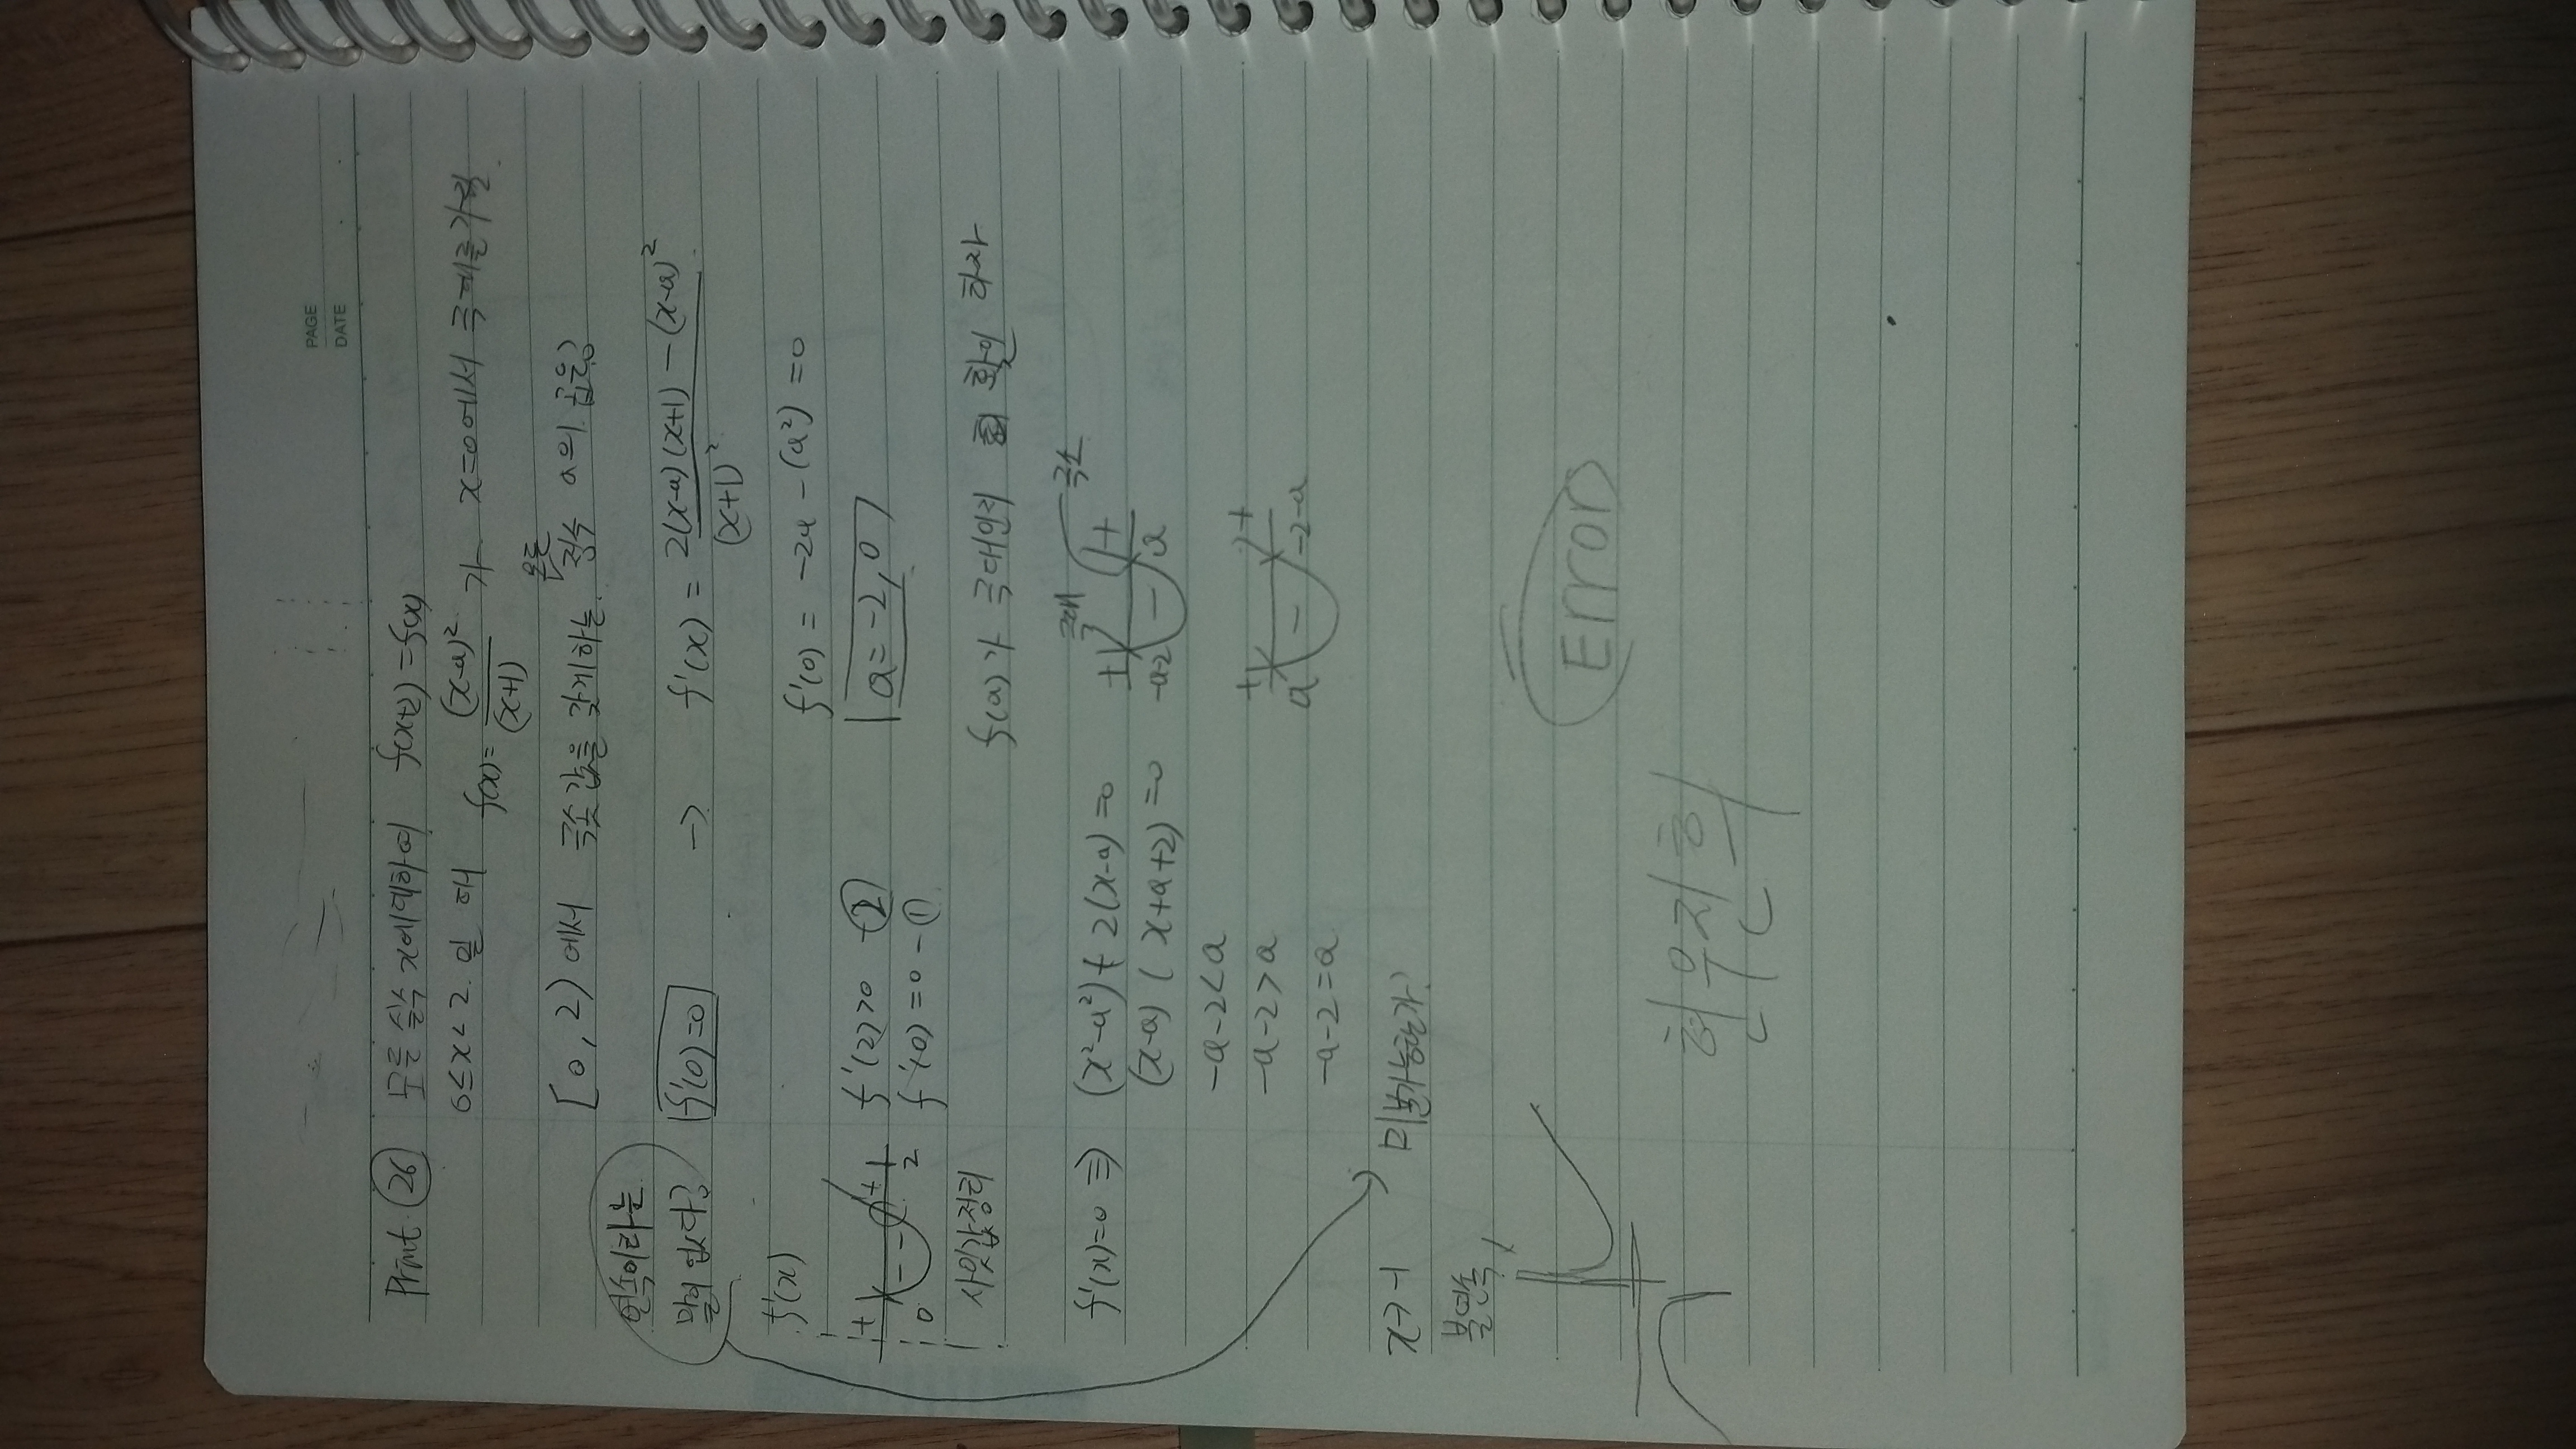 PAGE
DATE
Print ㉖ 모든 실수 x에 대하여 f(x+2)=f(x)
0≤x<2 일 때 f(x)= (x-a)²/(x+1) 가 x=0에서 극대를 가질
[0, 2) 에서 극솟값을 갖게하는 모든 정수 a의 곱은?
연속이라는
말이 없다?
f'(0)=0 → f'(x) = 2(x-a)(x+1) - (x-a)² / (x+1)²
f'(x)
f'(0) = -2a - (a²) = 0
+ - - + 0 2
f'(2)>0 - ②
f'(0)=0 - ①
a = -2, 0
사잇값정리
f(a)가 극대인지 확인 하자
f'(x)=0 ⇒ (x²-a²) + 2(x-a) = 0
(x-a) (x+a+2) = 0
극대 극소
+ - +
-a-2 a
-a-2 < a
-a-2 > a
+ - +
a -2-a
-a-2 = a
x→-1
미불가능한가?
불연속
Error
현우진 희